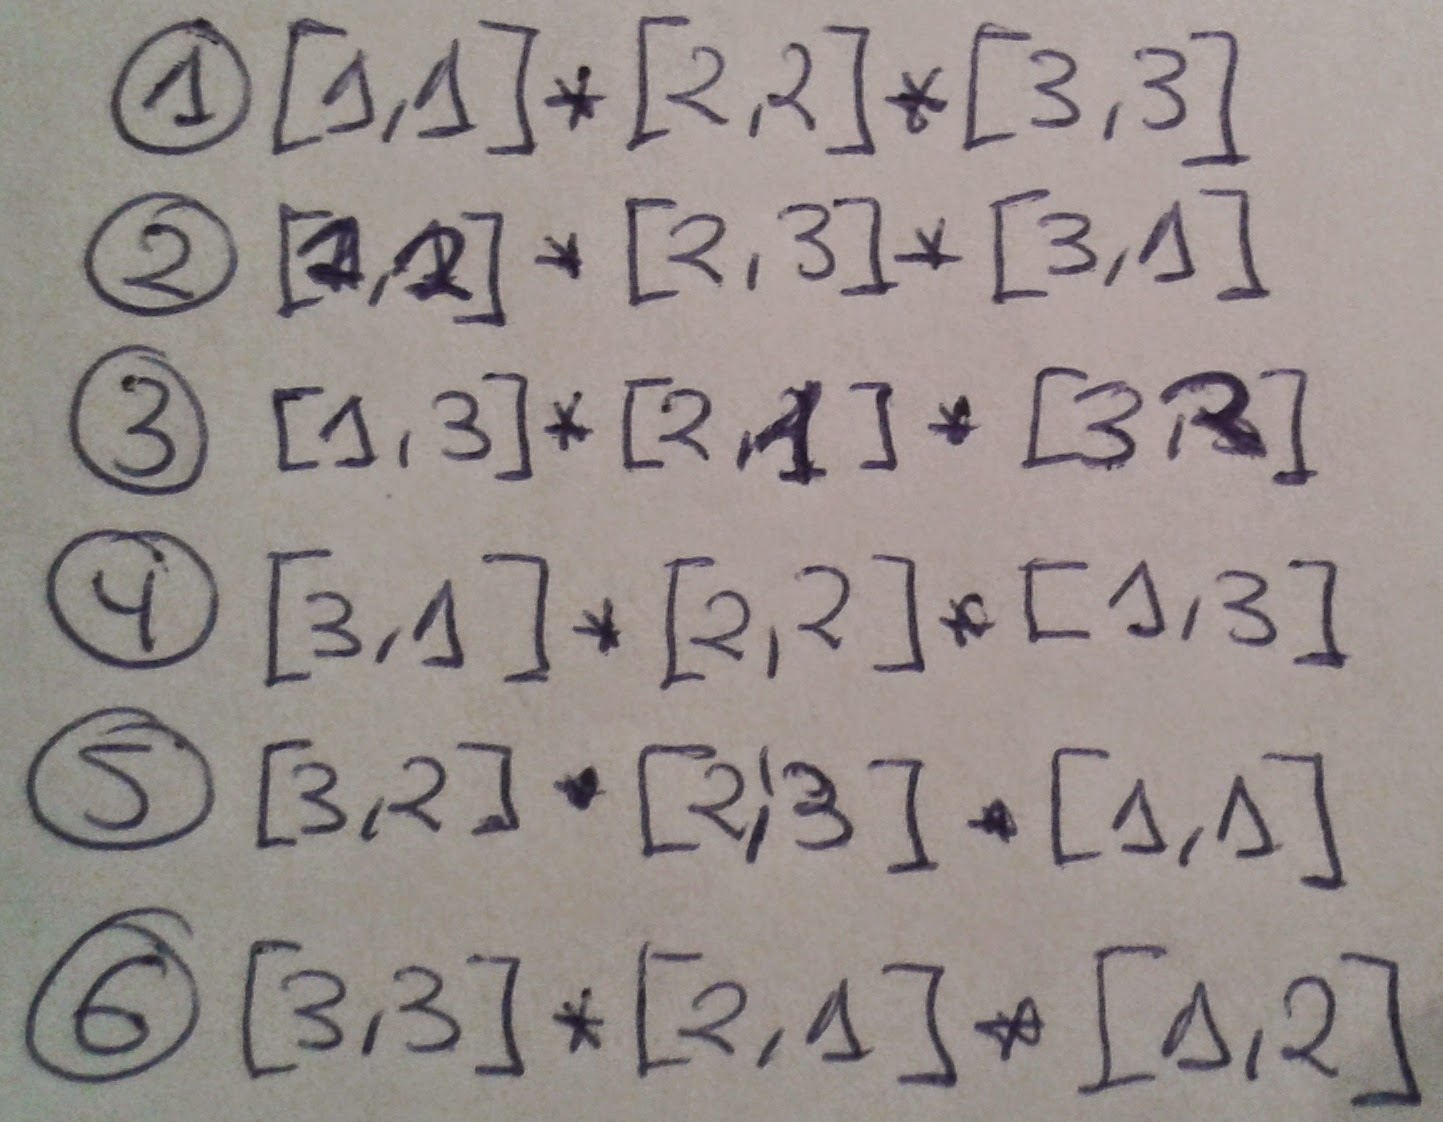 ① [1,1]*[2,2]*[3,3]
② [1,2]*[2,3]*[3,1]
③ [1,3]*[2,1]*[3,2]
④ [3,1]*[2,2]*[1,3]
⑤ [3,2]*[2,3]*[1,1]
⑥ [3,3]*[2,1]*[1,2]